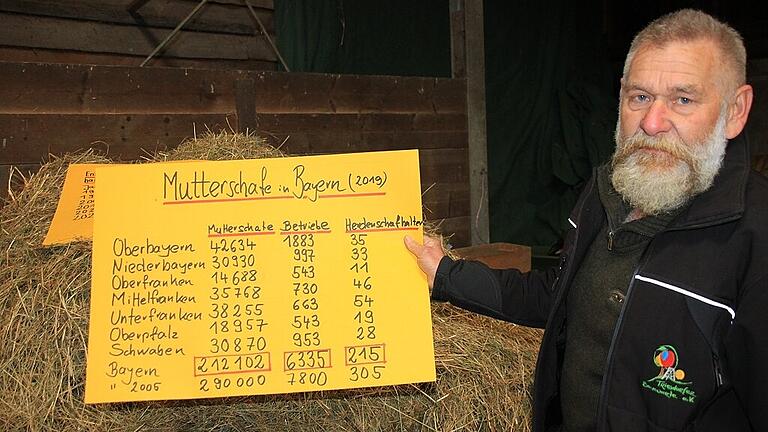 Mutterschafe in Bayern (2019)
Mutterschafe Betriebe Herdenschafhalter
Oberbayern 42634 1883 35
Niederbayern 30930 997 33
Oberfranken 14688 543 11
Mittelfranken 35768 730 46
Unterfranken 38255 663 54
Oberpfalz 18957 543 19
Schwaben 30870 953 28
Bayern 212102 6335 215
" 2005 290000 7800 305